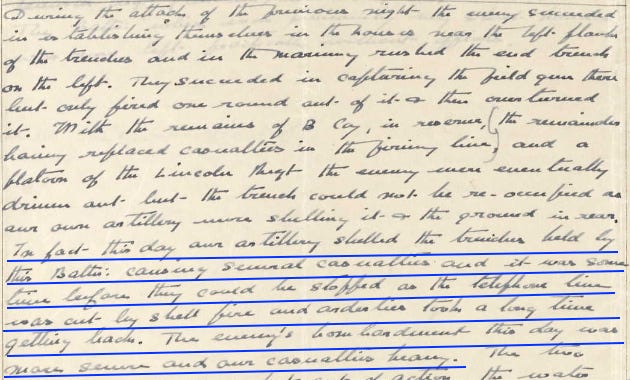 During the attacks of the previous night the enemy succeeded
in establishing themselves in the houses near the left flank
of the trenches and in the morning rushed the end trench
on the left. They succeeded in capturing the field gun there
but only fired one round out of it & then overturned
it. With the remains of B Coy, in reserve, (the remainder
having replaced casualties in the firing line) and a
platoon of the Lincoln Regt the enemy were eventually
driven out but the trench could not be re-occupied as
our own artillery were shelling it & the ground in rear.
In fact this day our artillery shelled the trenches held by
this Battn: causing several casualties and it was some
time before they could be stopped as the telephone line
was cut by shell fire and orderlies took a long time
getting back. The enemy's bombardment this day was
more severe and our casualties heavy. The two
out of action the water